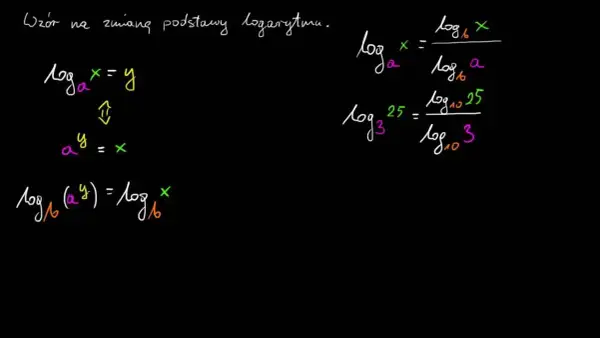 Wzór na zmianę podstawy logarytmu.
logₐ x = y
⇕
aʸ = x
log_b (aʸ) = log_b x
logₐ x = log_b x / log_b a
log₃ 25 = log₁₀ 25 / log₁₀ 3